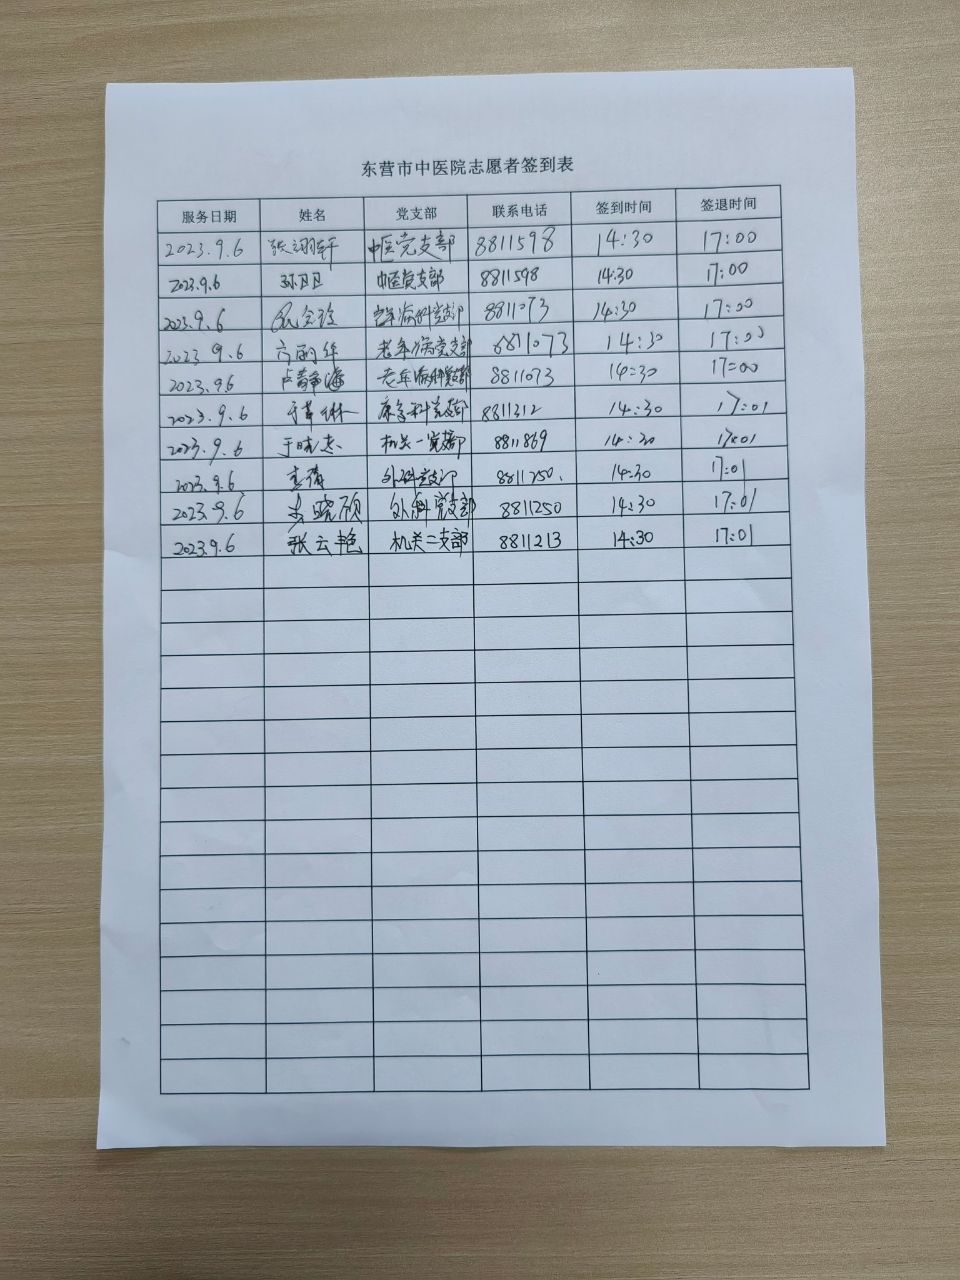 东营市中医院志愿者签到表
服务日期 姓名 党支部 联系电话 签到时间 签退时间
2023.9.6 张翊轩 中医党支部 8811598 14:30 17:00
2023.9.6 孙卫卫 中医党支部 8811598 14:30 17:00
2023.9.6 老年病科党支部 8811073 14:30 17:00
2023.9.6 方丽华 老年病党支部 8811073 14:30 17:00
2023.9.6 卢静海 老年病科党支部 8811073 14:30 17:00
2023.9.6 康复科党支部 8811312 14:30 17:01
2023.9.6 于晓杰 机关一党支部 8811869 14:30 17:01
2023.9.6 外科党支部 8811250. 14:30 17:01
2023.9.6 李晓硕 外科党支部 8811250 14:30 17:01
2023.9.6 张云艳 机关二支部 8811213 14:30 17:01